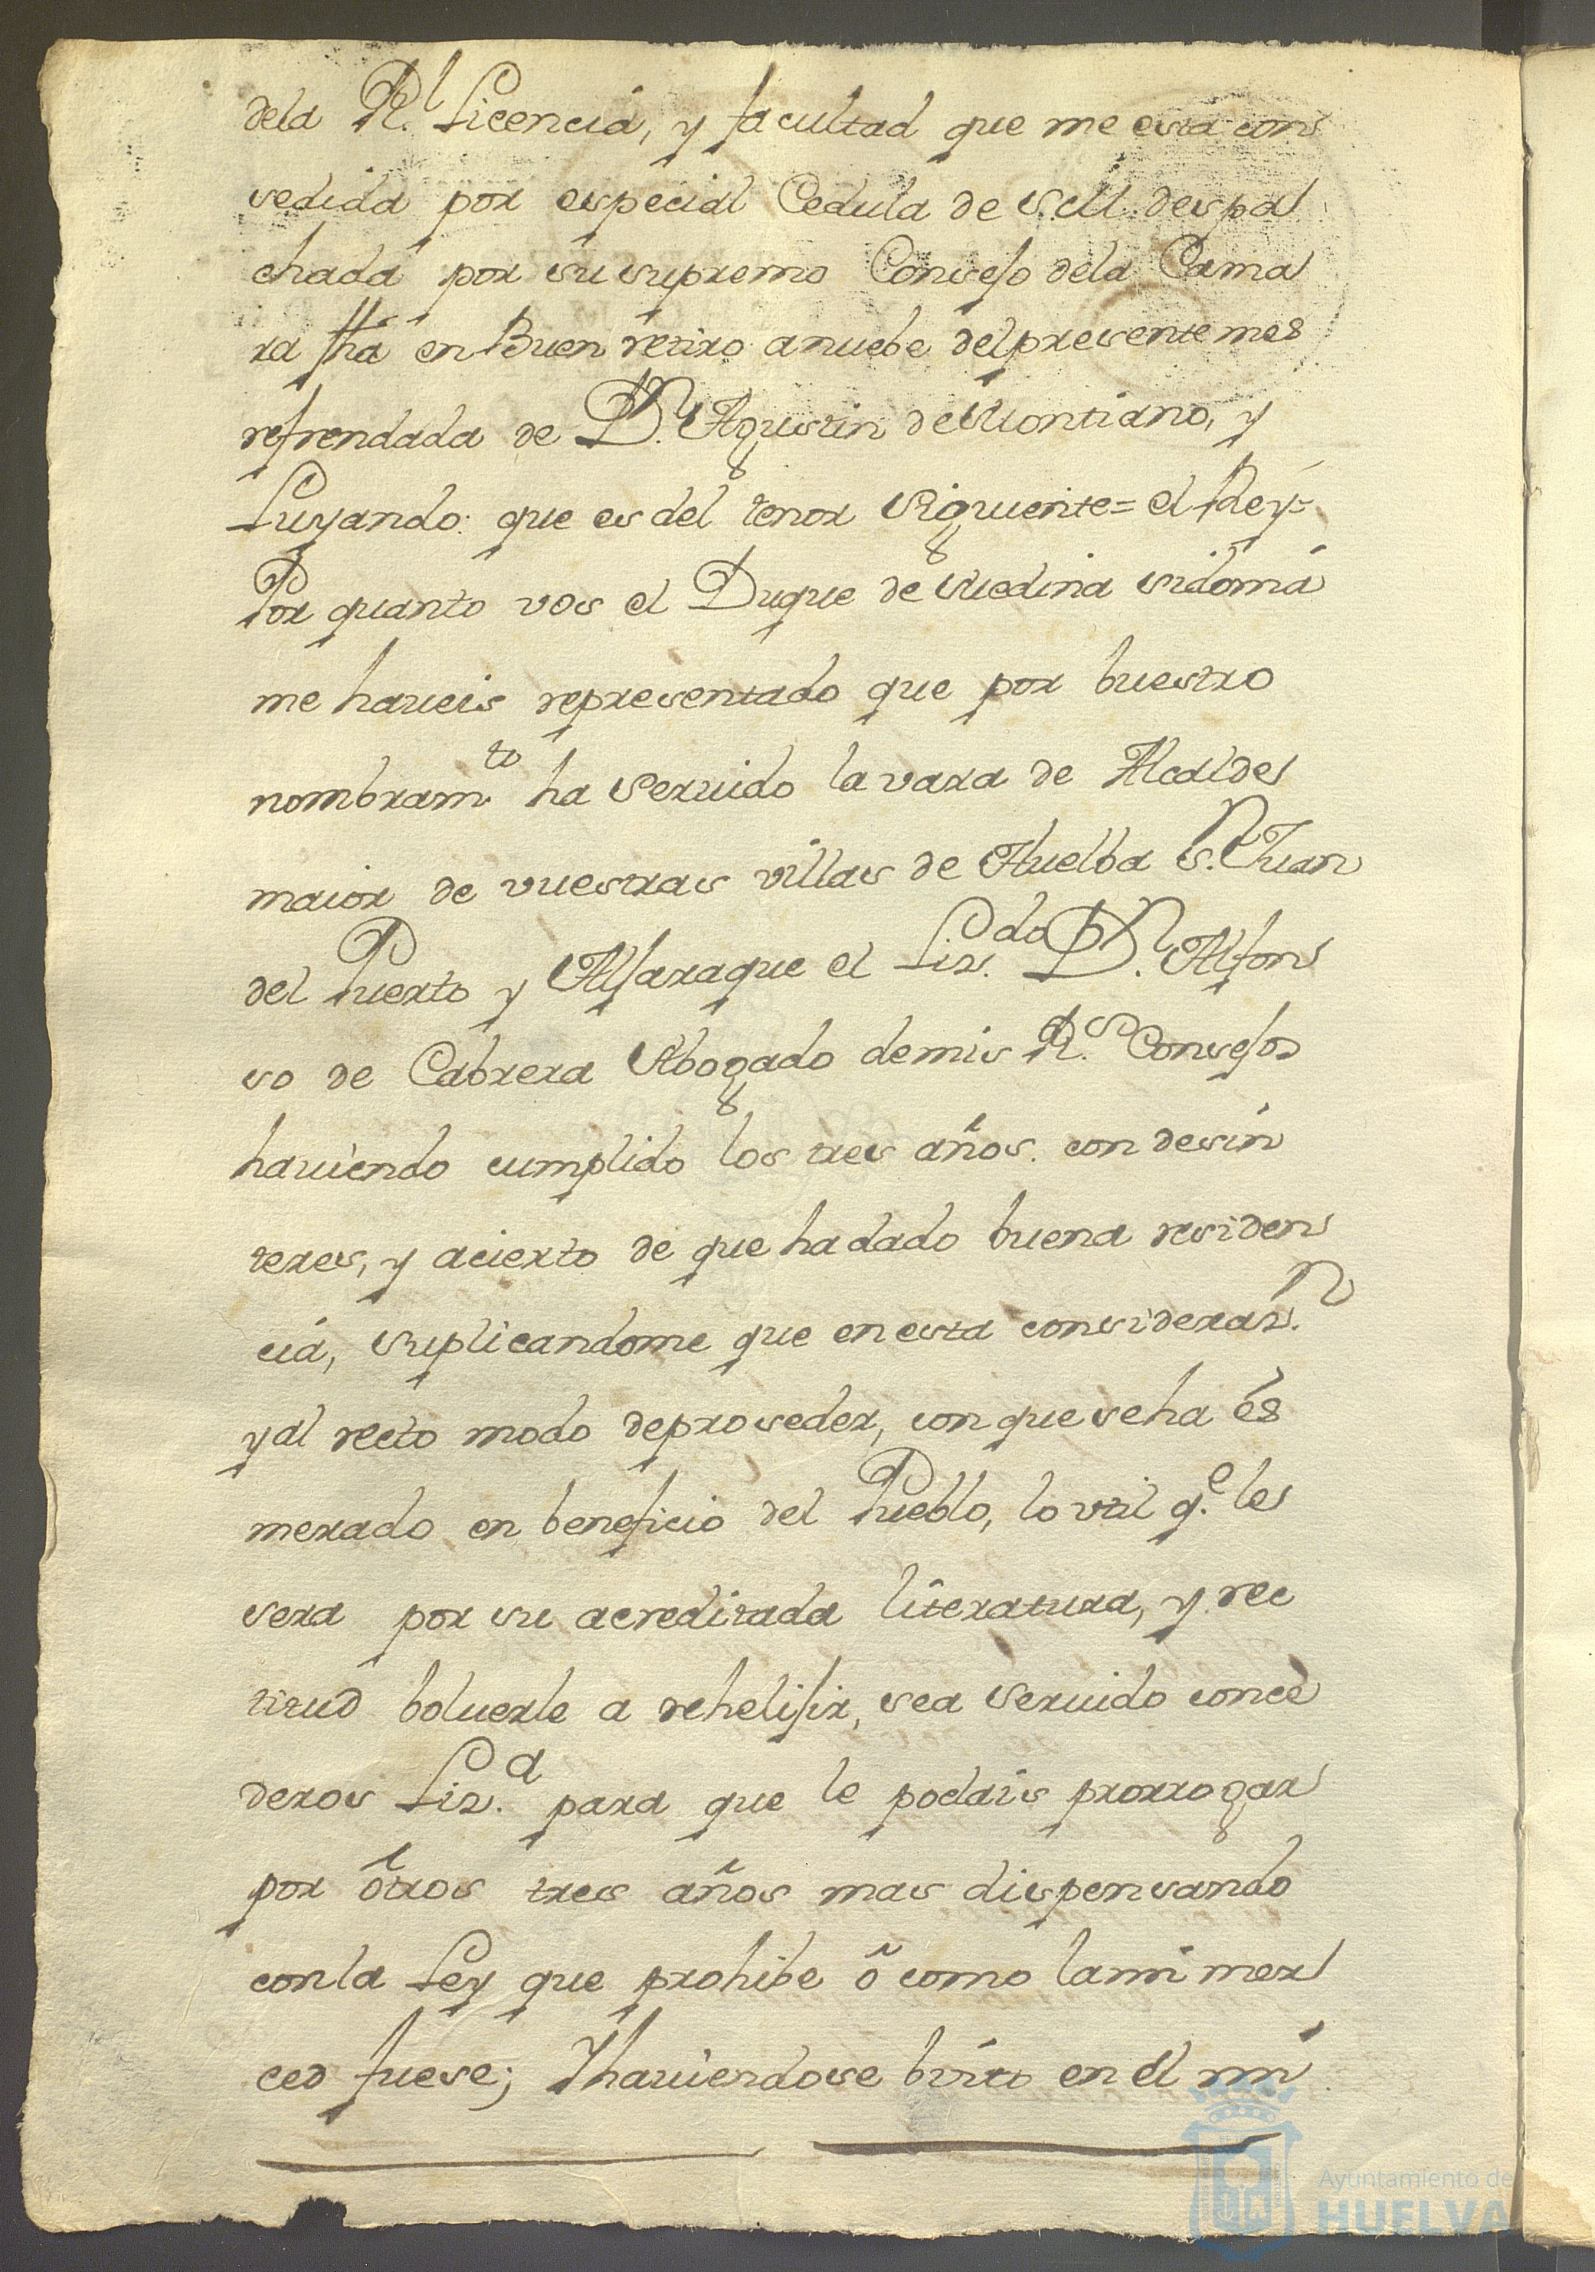 dela Rl. Licencia, y facultad que me esta con
sedida por especial Cedula de S.M. despa
chada por su supremo Consejo dela Cama
ra fha en Buen retiro anuebe del presente mes
refrendada de Dn. Agustin de Montiano, y
Luyando: que es del tenor siguiente= el Rey=
Por quanto vos el Duque de Medina sidonia
me haueis representado que por buestro
nombramto. ha seruido la vara de Alcalde
maior de vuestras villas de Huelba Sn. Juan
del Puerto y Aljaraque el Lizdo. Dn. Alfon
so de Cabrera Abogado demis Rs. Consejos
hauiendo cumplido los tres años. con desin
teres, y acierto de que ha dado buena residen
cia, suplicandome que en esta considerazn.
y al recto modo deproseder, con que se ha es
merado en beneficio del Pueblo, lo vtil qe. les
sera por su acreditada literatura, y rec
titud boluerle a rehelijir, sea seruido conce
deros Liza. para que le podais prorrogar
por otros tres años mas dispensando
conla Ley que prohibe ô como lami mer
ced fuese; Y hauiendose bisto en el mi
Ayuntamiento de
HUELVA